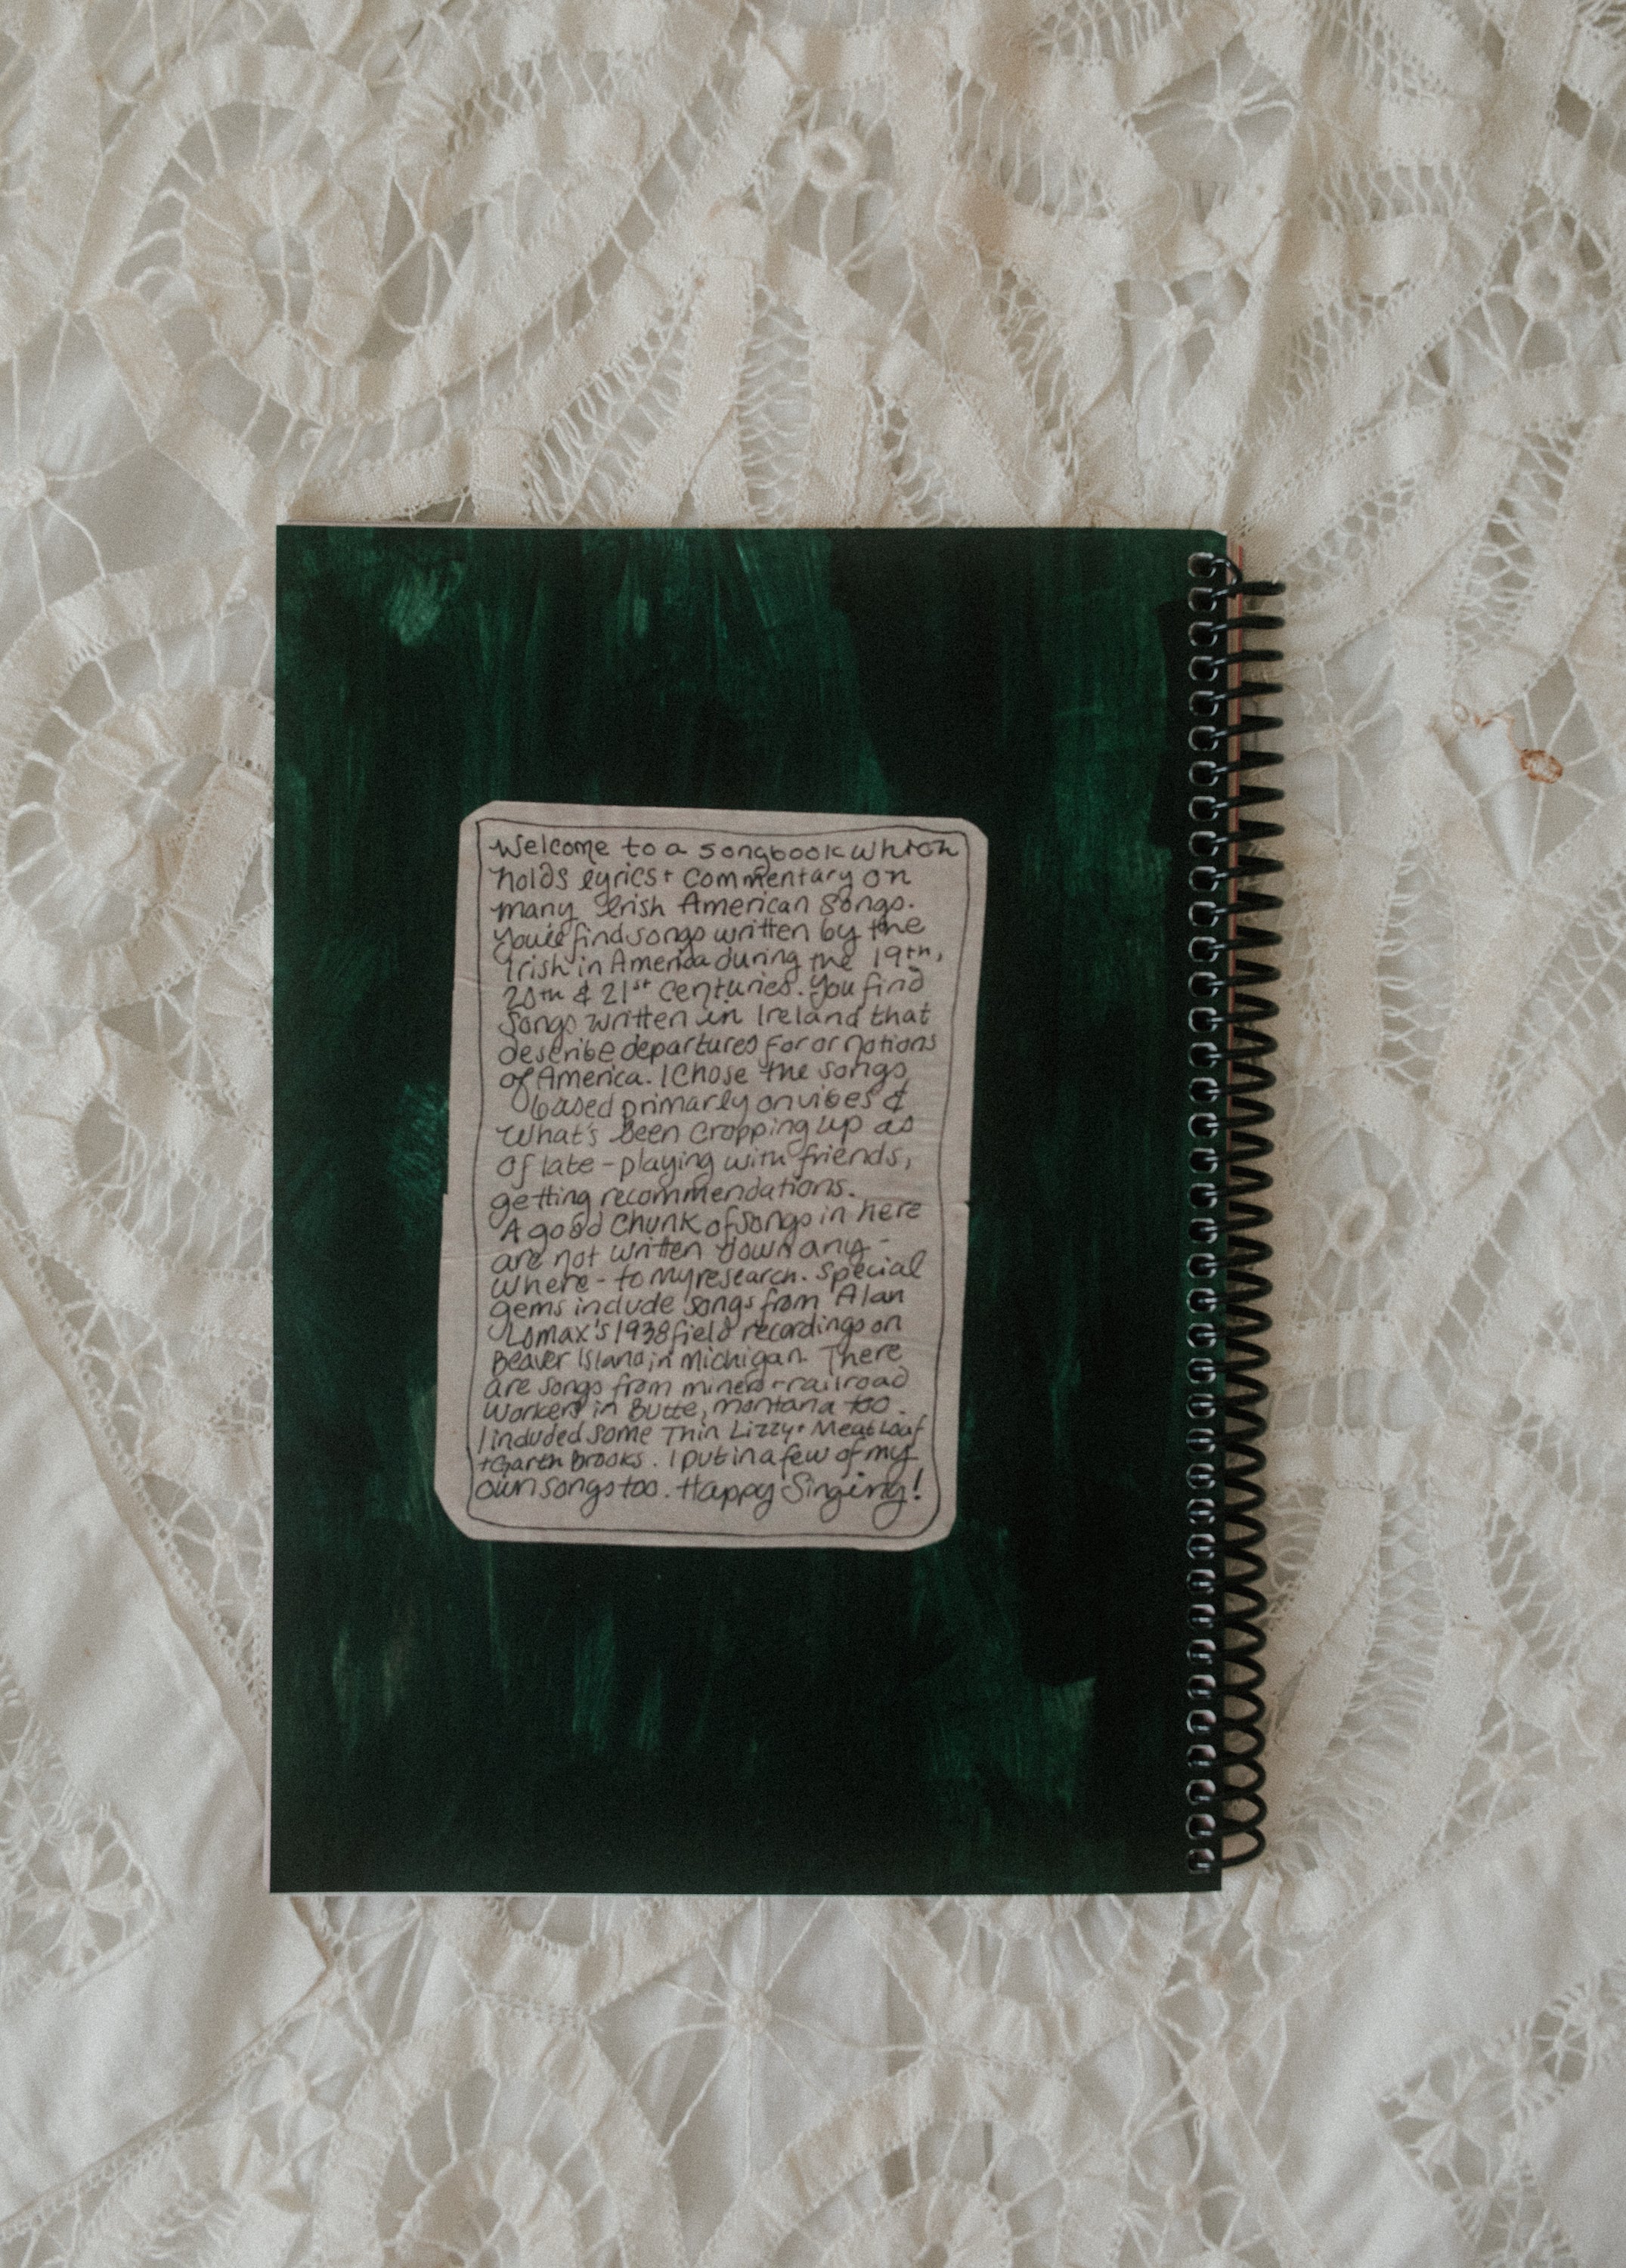 Welcome to a songbook which
holds lyrics + commentary on
many Irish American songs.
You'll find songs written by the
Irish in America during the 19th,
20th & 21st centuries. You find
songs written in Ireland that
describe departures for or notions
of America. I chose the songs
based primarly on vibes &
what's been cropping up as
of late - playing with friends,
getting recommendations.
A good chunk of songs in here
are not written down any-
where - to my research. Special
gems include songs from Alan
Lomax's 1938 field recordings on
Beaver Island in Michigan. There
are songs from miners + railroad
workers in Butte, Montana too.
I included some Thin Lizzy + Meat Loaf
+ Garth Brooks. I put in a few of my
own songs too. Happy Singing!